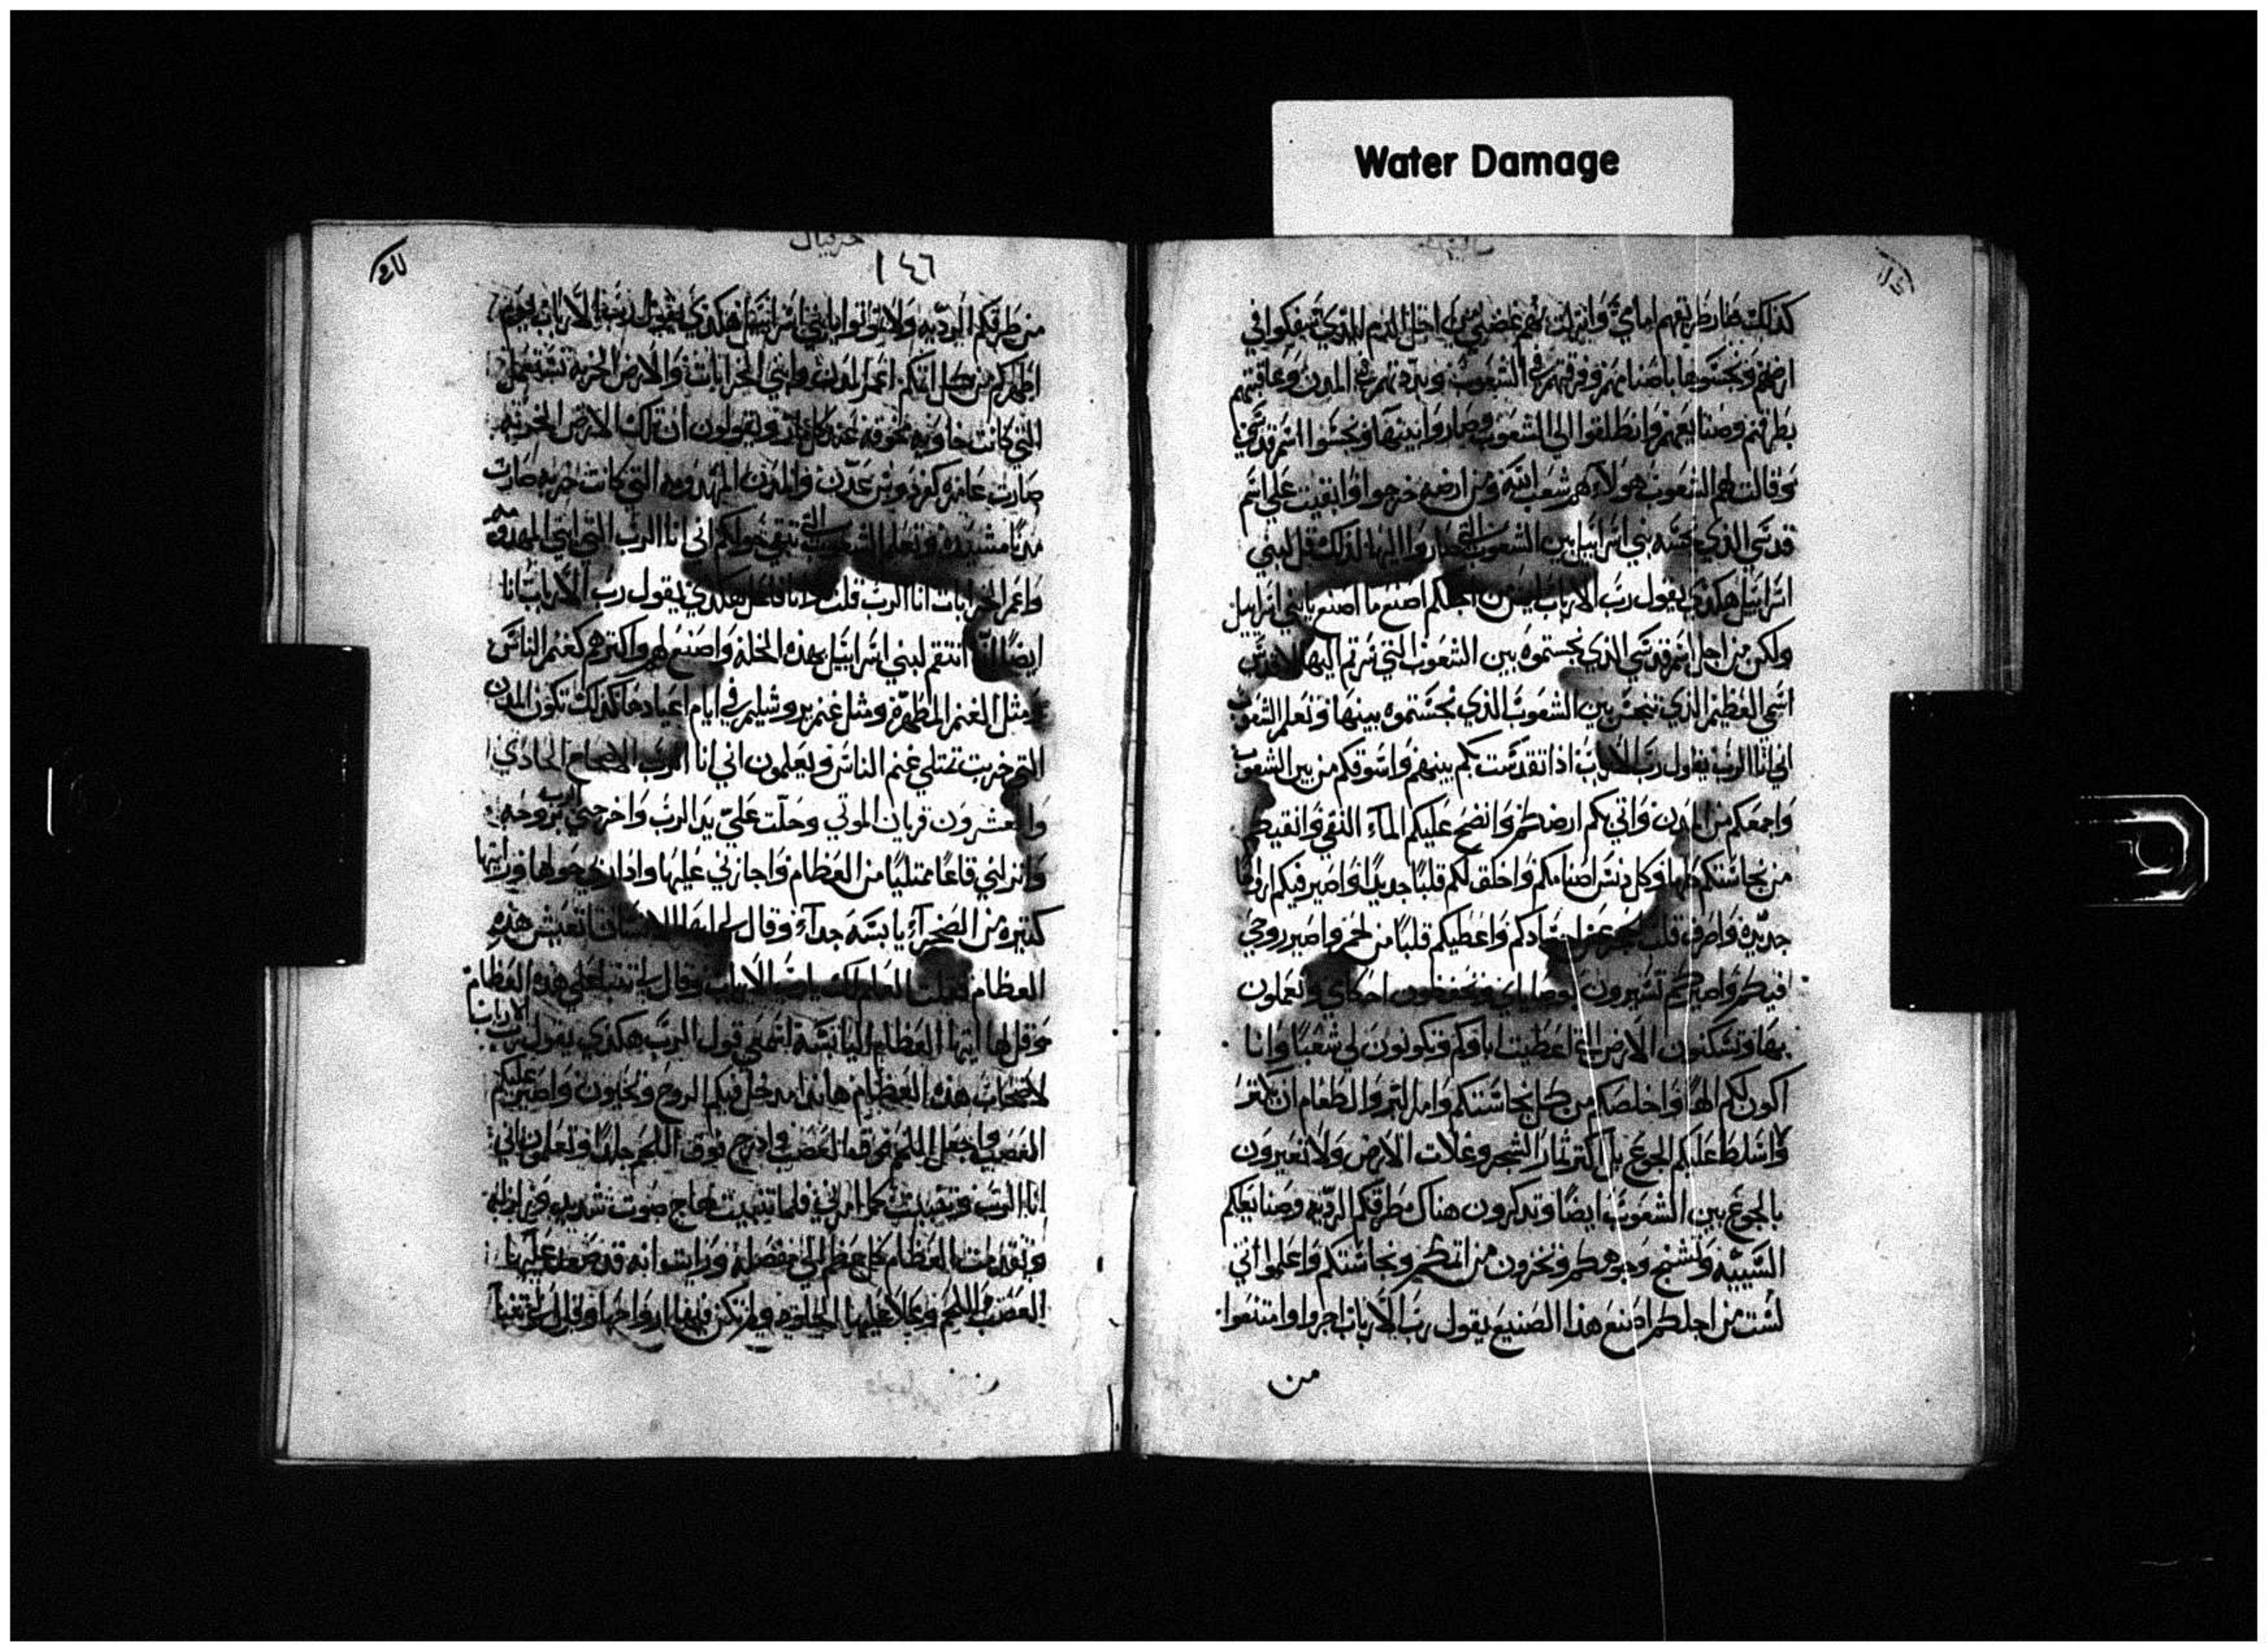 Water Damage
كذلك صار طريقهم امامي وانزلت بهم غضبي من اجل الدم الذي سفكوا في
ارضهم ونجسوها باصنامهم وفرقتهم في الشعوب وبددتهم في المدن وعاقبتهم
بطرقهم وصنايعهم وانطلقوا الى الشعوب وصاروا بينها ونجسوا اسم قدسي
وقالت لهم الشعوب هولاء هم شعب الله ومن ارضه خرجوا وابقيت على اسم
قدسي الذي نجسه بني اسراييل بين الشعوب التي صاروا اليها لذلك قل لبني
اسراييل هكذي يقول رب الارباب ليس من اجلكم اصنع ما اصنع يا بني اسراييل
ولكن من اجل اسم قدسي الذي نجستموه بين الشعوب التي سرتم اليها لاقدس
اسمي العظيم الذي تنجس بين الشعوب الذي نجستموه بينها وتعلم الشعوب
اني انا الرب يقول رب الارباب اذا تقدست بكم بينهم واسوقكم من بين الشعوب
واجمعكم من المدن واتي بكم ارضكم وانضح عليكم الماء النقي وانقيكم
من نجاستكم كلها وكل دنس اصنامكم واخلق لكم قلبا جديدا واصير فيكم ارواحا
جديدة واصرف قلب الحجر عن اجسادكم واعطيكم قلبا من لحم واصير روحي
فيكم واصيركم تسيرون بوصاياي وتحفظون احكامي وتعملون
بها وتسكنون الارض التي اعطيت اباوكم وتكونون لي شعبا وانا
اكون لكم الها واخلصكم من كل نجاستكم وامر البر والطعام ان يكثر
ولا اسلط عليكم الجوع بل اكثر ثمار الشجر وغلات الارض ولا تعيرون
بالجوع بين الشعوب ايضا وتذكرون هناك طرقكم الردية وصنايعكم
السيية وتشنج وجوهكم وتخزون من اثمكم ونجاستكم واعلموا انني
لست من اجلكم اصنع هذا الصنيع يقول رب الارباب اخزوا وامتنعوا
من
حزقيال
١٤٦
من طرقكم الردية ولا تموتوا يا بني اسراييل هكذي يقول رب الارباب يوم
اطهركم من كل اثمكم اعمر المدن وابني الخرابات والارض الخربة تستعمل
التي كانت خاوية مخوفة عند كل احد ويقولون ان تلك الارض الخربة
صارت عامرة كفردوس عدن والمدن المهدومة التي كانت خربة صارت
مدنا مشيدة وتعلم الشعوب التي تبقى حولكم اني انا الرب التي ابني المهدومة
واعمر الخرابات انا الرب قلت وانا فاعل هكذي يقول رب الارباب انا
ايضا انتقم لبني اسراييل بهذه الخلة واصنع لهم واكثرهم كغنم الناس
ومثل الغنم المطهرة ومثل غنم يروشليم في ايام اعيادها كذلك تكون المدن
التي خربت تمتلي غنم الناس ويعلمون اني انا الرب الاصحاح الحادي
والعشرون قربان الموتى وحلت علي يد الرب واخرجني الرب بروحه
وانزلني قاعا ممتليا من العظام واجازني عليها وادارني حولها ورايتها
كثيرة من الصحراء يابسة جدا وقال لي ايها الانسان اتعيش هذه
العظام فقلت العلم لك يا رب الارباب وقال لي تنبا على هذه العظام
وقل لها ايتها العظام اليابسة اسمعي قول الرب هكذي يقول رب الارباب
لاصحاب هذه العظام هانذا مدخل فيكم الروح وتحيون واصير عليكم
العصب واجعل اللحم فوق العصب وادرج فوق اللحم جلدا وتعلموا اني
انا الرب وتنبيت كما امرني فلما تنبيت هاج صوت شديد
وتقدمت العظام كل عظم الى مفصله ورايت انه قد صعد عليها
العصب واللحم وعلا عليها الجلود ولم تكن فيها ارواحا وقال لي تنبا